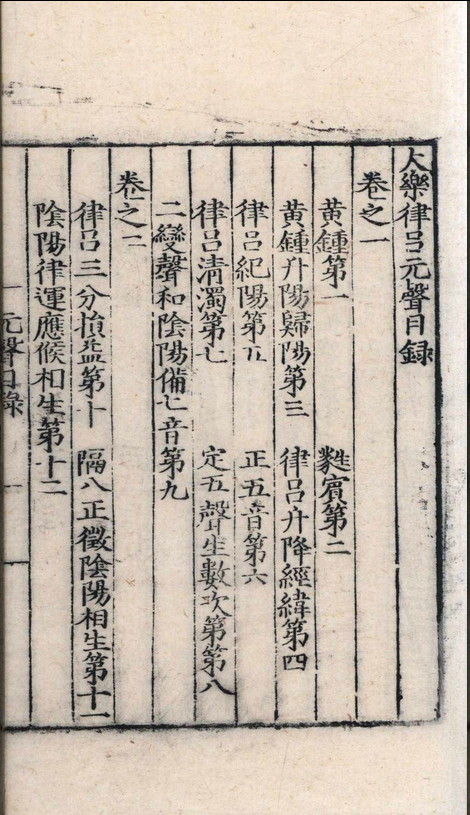 大樂律呂元聲目録
卷之一
黃鍾第一　蕤賓第二
黃鍾升陽歸陽第三　律呂升降經緯第四
律呂紀陽第五　正五音第六
律呂清濁第七　定五聲生數次第第八
二變聲和陰陽備七音第九
卷之二
律呂三分損益第十　隔八正徵陰陽相生第十一
陰陽律運應候相生第十二
元聲目錄　一